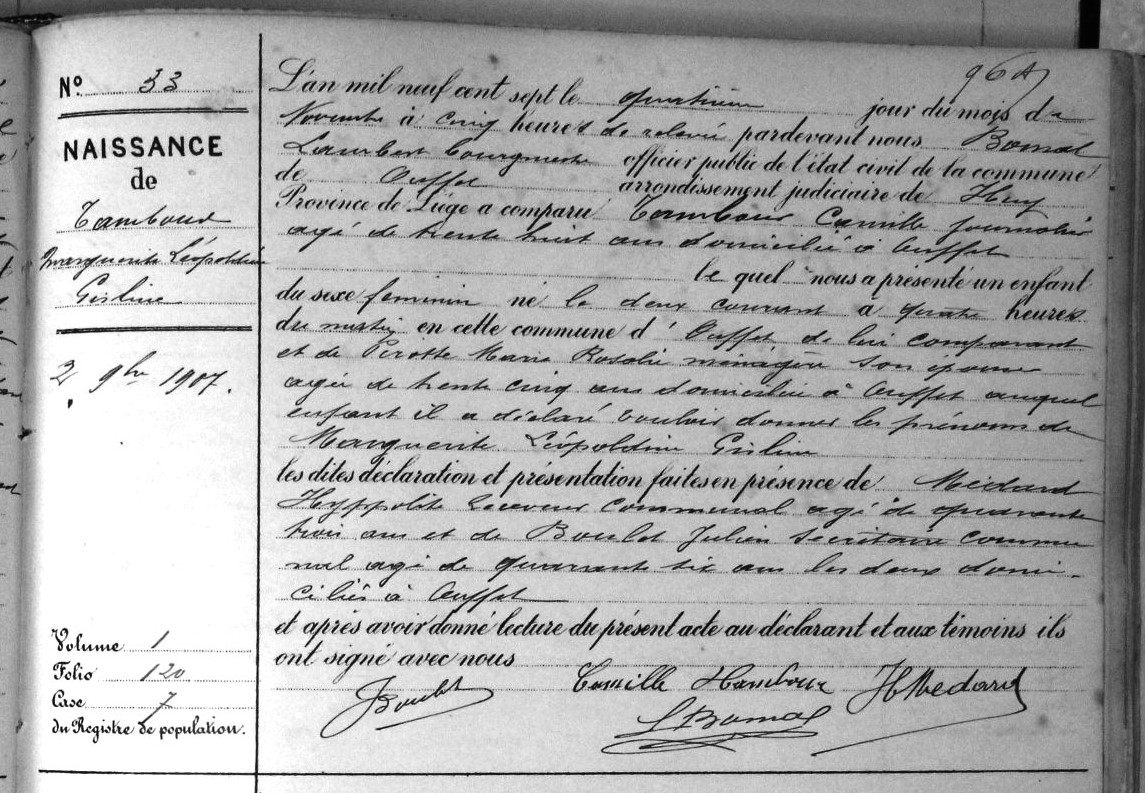 N° 33
NAISSANCE
de
Tambour
Marguerite Léopoldine
Gisline
2 9bre 1907.
Volume 1
Folio 120
Case 7
du Registre de population.
96
L'an mil neuf cent sept le quatrième jour du mois de
Novembre à cinq heures de relevée pardevant nous Bomal
Lambert bourgmestre officier public de l'état civil de la commune
de Ouffet arrondissement judiciaire de Huy
Province de Liège a comparu Tambour Camille journalier
agé de trente huit ans domicilié à Ouffet
le quel nous a présenté un enfant
du sexe feminin né le deux courant à quatre heures
du matin en cette commune d'Ouffet de lui comparant
et de Pirotte Marie Rosalie ménagère son épouse
agée de trente cinq ans domiciliée à Ouffet auquel
enfant il a déclaré vouloir donner les prénoms de
Marguerite Léopoldine Gisline
les dites déclaration et présentation faites en présence de Médard
Hyppolite receveur communal agé de quarante
trois ans et de Boulet Julien Secrétaire commu
nal agé de quarante six ans les deux domi-
ciliés à Ouffet
et après avoir donné lecture du présent acte au déclarant et aux témoins ils
ont signé avec nous
JBoulet Camille Hambour HMedard
LBomal